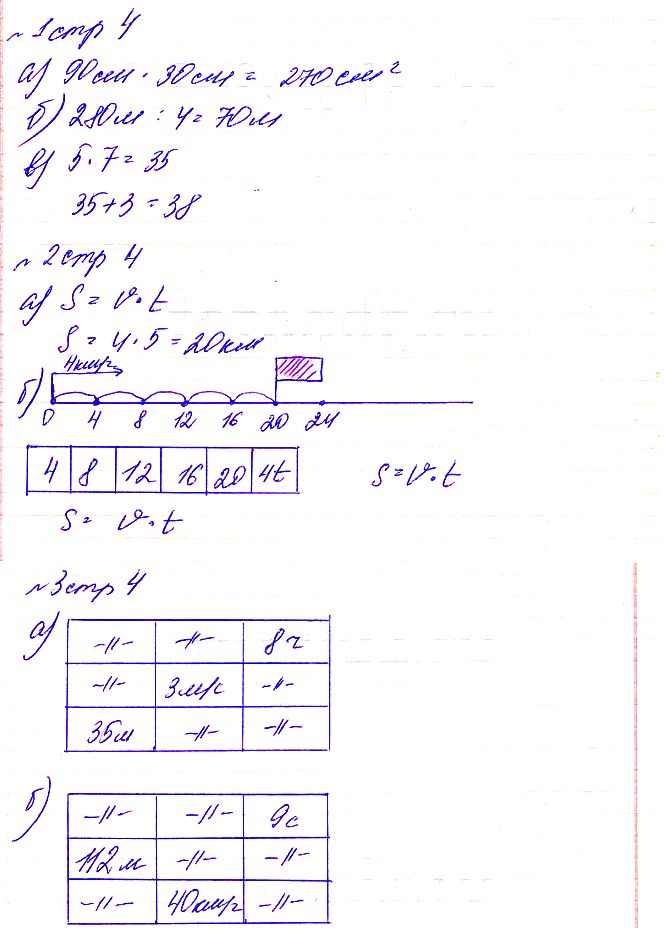 ~1стр 4
а) 90см · 30см = 270см²
б) 280м : 4 = 70м
в) 5·7 = 35
35+3 = 38
~2стр 4
а) S = v·t
S = 4·5 = 20км
4км/ч
б)
0 4 8 12 16 20 24
4 8 12 16 20 4t S = v·t
S = v·t
~3стр 4
а)
-//- -//- 8ч
-//- 3м/с -//-
35м -//- -//-
б)
-//- -//- 9с
112м -//- -//-
-//- 40км/г -//-